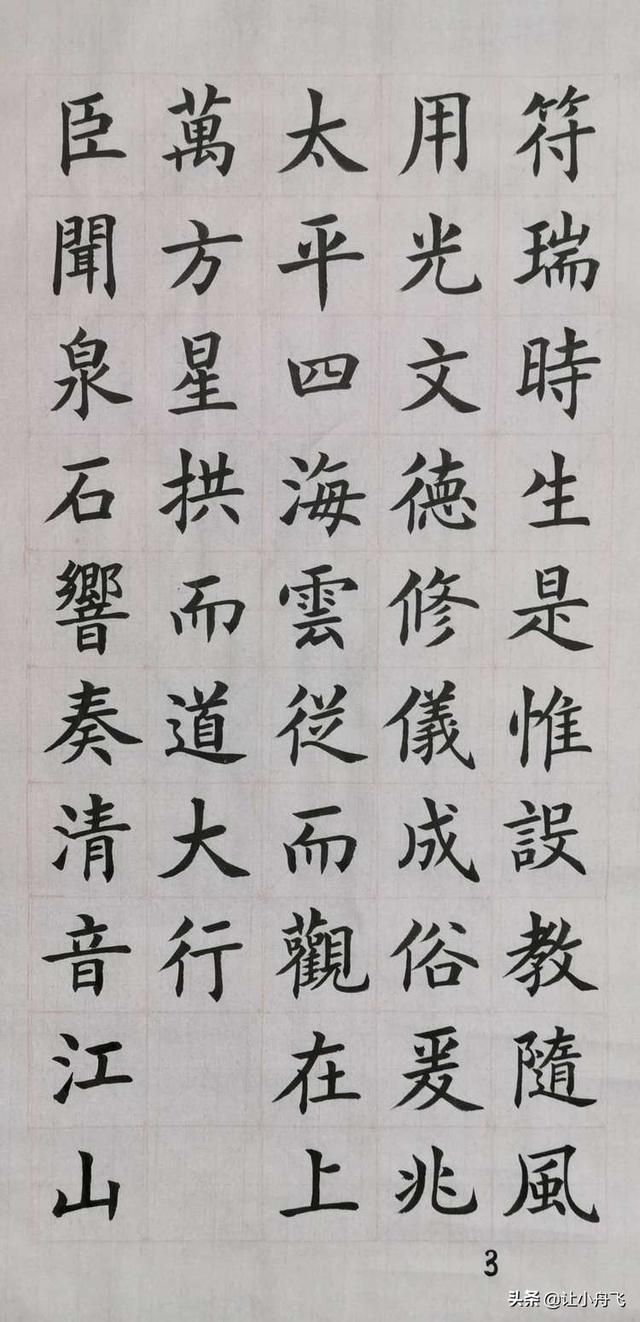 符瑞時生是惟設教隨風
用光文德修儀成俗爰兆
太平四海雲從而觀在上
萬方星拱而道大行
臣聞泉石響奏清音江山
3
头条 @让小舟飞